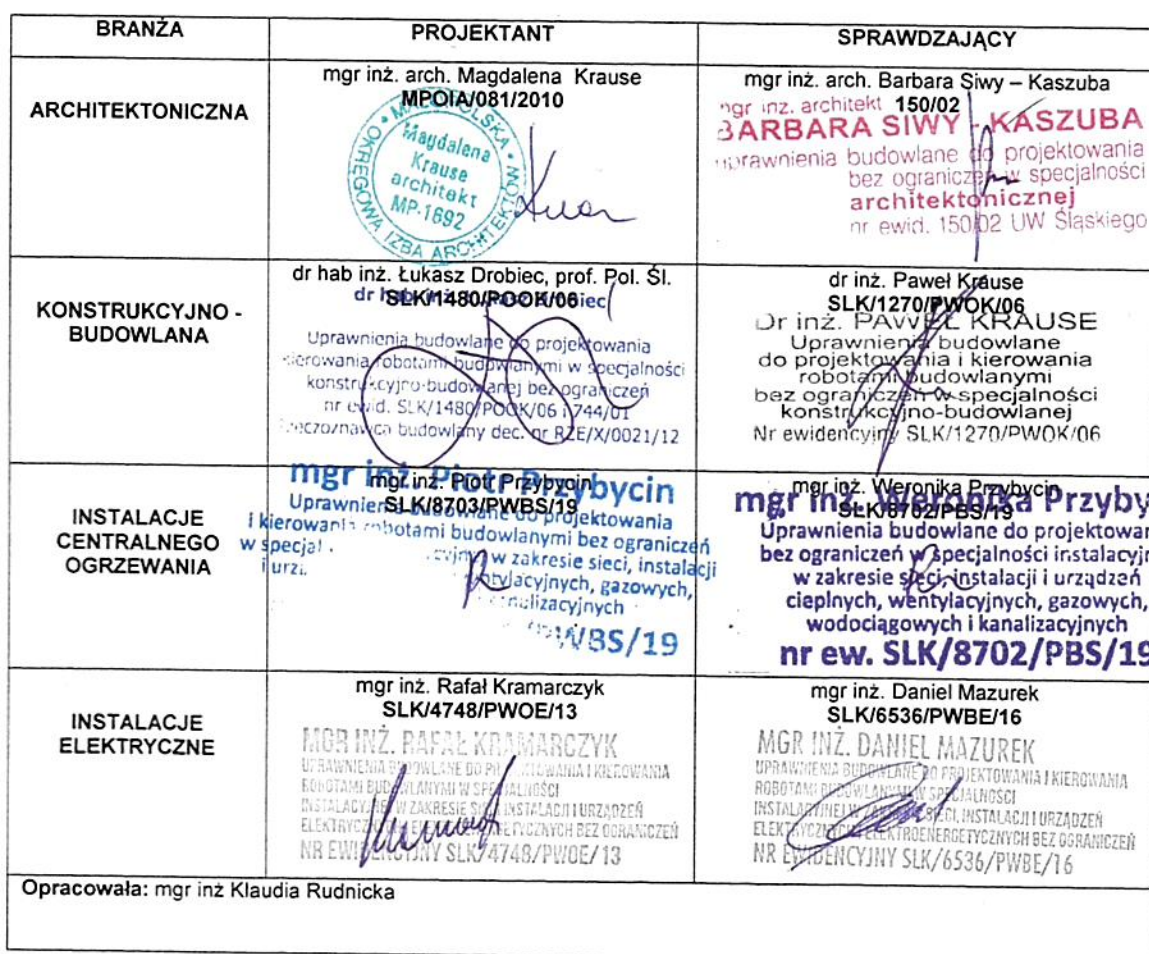 BRANŻA
PROJEKTANT
SPRAWDZAJĄCY
ARCHITEKTONICZNA
mgr inż. arch. Magdalena Krause
MPOIA/081/2010
MAŁOPOLSKA OKRĘGOWA IZBA ARCHITEKTÓW
Magdalena
Krause
architekt
MP-1692
mgr inż. arch. Barbara Siwy – Kaszuba
150/02
mgr inż. architekt
BARBARA SIWY - KASZUBA
uprawnienia budowlane do projektowania
bez ograniczeń w specjalności
architektonicznej
nr ewid. 150/02 UW Śląskiego
KONSTRUKCYJNO -
BUDOWLANA
dr hab inż. Łukasz Drobiec, prof. Pol. Śl.
SLK/1480/POOK/06
Uprawnienia budowlane do projektowania
kierowania robotami budowlanymi w specjalności
konstrukcyjno-budowlanej bez ograniczeń
nr ewid. SLK/1480/POOK/06 i 744/01
rzeczoznawca budowlany dec. nr RZE/X/0021/12
dr inż. Paweł Krause
SLK/1270/PWOK/06
Dr inż. PAWEŁ KRAUSE
Uprawnienia budowlane
do projektowania i kierowania
robotami budowlanymi
bez ograniczeń w specjalności
konstrukcyjno-budowlanej
Nr ewidencyjny SLK/1270/PWOK/06
INSTALACJE
CENTRALNEGO
OGRZEWANIA
mgr inż. Piotr Przybycin
SLK/8703/PWBS/19
mgr inż. Piotr Przybycin
Uprawnienia budowlane do projektowania
i kierowania robotami budowlanymi bez ograniczeń
w specjal
w zakresie sieci, instalacji
i urz
wentylacyjnych, gazowych,
kanalizacyjnych
WBS/19
mgr inż. Weronika Przybycin
SLK/8702/PBS/19
mgr inż. Weronika Przyby
Uprawnienia budowlane do projektowan
bez ograniczeń w specjalności instalacyjn
w zakresie sieci, instalacji i urządzeń
cieplnych, wentylacyjnych, gazowych,
wodociągowych i kanalizacyjnych
nr ew. SLK/8702/PBS/19
INSTALACJE
ELEKTRYCZNE
mgr inż. Rafał Kramarczyk
SLK/4748/PWOE/13
MGR INŻ. RAFAŁ KRAMARCZYK
UPRAWNIENIA BUDOWLANE DO PROJEKTOWANIA I KIEROWANIA
ROBOTAMI BUDOWLANYMI W SPECJALNOŚCI
INSTALACYJNEJ W ZAKRESIE SIECI, INSTALACJI I URZĄDZEŃ
ELEKTRYCZNYCH I ELEKTROENERGETYCZNYCH BEZ OGRANICZEŃ
NR EWIDENCYJNY SLK/4748/PWOE/13
mgr inż. Daniel Mazurek
SLK/6536/PWBE/16
MGR INŻ. DANIEL MAZUREK
UPRAWNIENIA BUDOWLANE DO PROJEKTOWANIA I KIEROWANIA
ROBOTAMI BUDOWLANYMI W SPECJALNOŚCI
INSTALACYJNEJ W ZAKRESIE SIECI, INSTALACJI I URZĄDZEŃ
ELEKTRYCZNYCH I ELEKTROENERGETYCZNYCH BEZ OGRANICZEŃ
NR EWIDENCYJNY SLK/6536/PWBE/16
Opracowała: mgr inż Klaudia Rudnicka